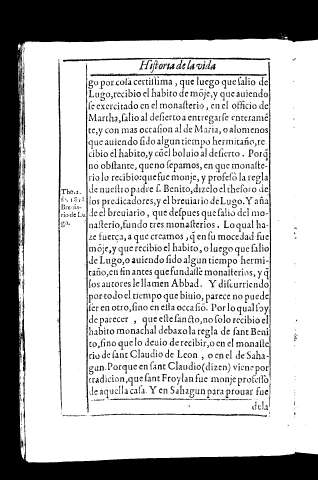 Historia de la vida
go por cosa certissima, que luego que salio de
Lugo, recibio el habito de mõje, y que auiendo
se exercitado en el monasterio, en el officio de
Martha, salio al desierto a entregarse enteramẽ
te, y con mas occasion al de Maria, o alomenos
que auiendo sido algun tiempo hermitaño, re
cibio el habito, y cõel boluio al desierto. Porq̃
nò obstante, que no sepamos, en que monaste-
rio lo recibio: que fue monje, y professò la regla
de nuestro padre s. Benito, dizelo el thesoro de
los predicadores, y el breuiario de Lugo. Y aña
de el breuiario, que despues que salio del mo-
nasterio, fundo tres monasterios. Lo qual ha-
ze fuerça, a que creamos, q̃ en su mocedad fue
mõje, y que recibio el habito, o luego que salio
de Lugo, o auiendo sido algun tiempo hermi-
taño, en fin antes que fundasse monasterios, y q̃
los autores le llamen Abbad. Y discurriendo
por todo el tiempo que biuio, parece no puede
ser en otro, sino en ella occasiõ. Por lo qual soy
de parecer, que este sancto, no solo recibio el
habito monachal debaxo la regla de sant Beni
to, sino que lo deuio de recibir, o en el monaste
rio de sant Claudio de Leon, o en el de Saha-
gun. Porque en sant Claudio (dizen) viene por
tradicion, que sant Froylan fue monje professo
de aquella casa. Y en Sahagun para prouar fue
dela
Tho. 2.
Breuia-
rio de Lu
go.